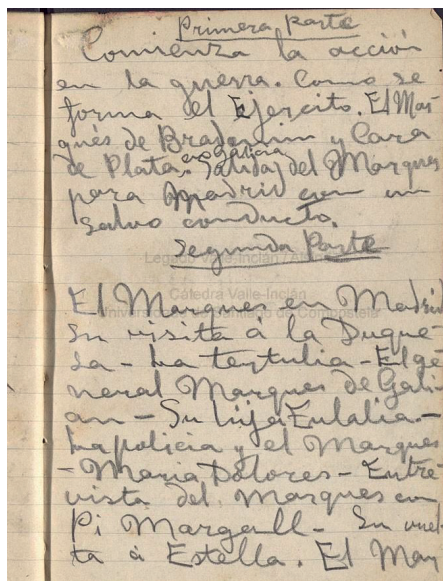 Primera parte
Comienza la acción
en la guerra. Como se
forma el Ejercito. El Mar-
qués de Bradomin y Cara
de Plata. en Galicia Salida del Marques
para Madrid con un
salvo conducto.
Segunda Parte
Legado Valle-Inclán
Cátedra Valle-Inclán
El Marques en Madrid
Su visita á la Duque
sa - La tertulia - El ge
neral Marques de Gali
an - Su hija Eulalia. -
La policia y el Marques
- Maria Dolores - Entre
vista del Marques con
Pi Margall - Su vuel
ta á Estella. El Mar